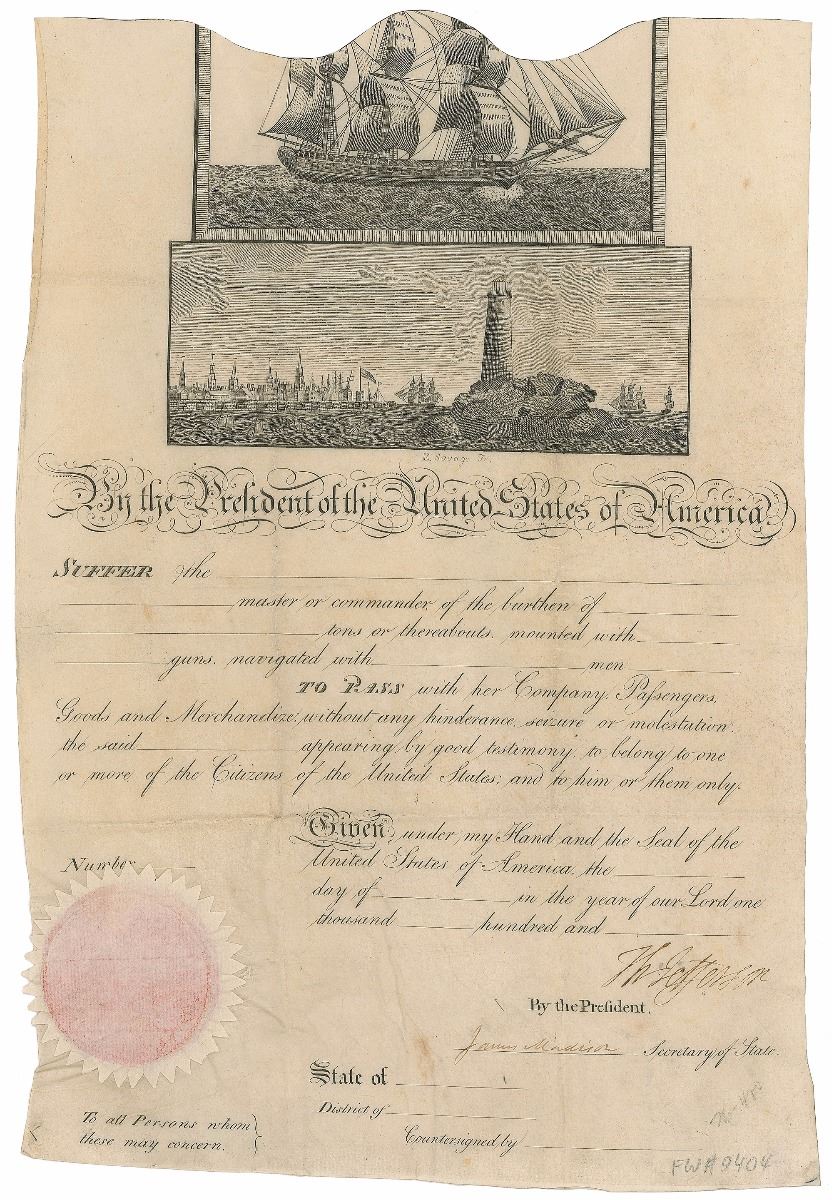 By the President of the United States of America.
SUFFER the
master or commander of the burthen of
tons or thereabouts mounted with
guns. navigated with men
TO PASS with her Company, Passengers,
Goods and Merchandize, without any hinderance, seizure or molestation.
the said appearing by good testimony to belong to one
or more of the Citizens of the United States; and to him or them only.
Given under my Hand and the Seal of the
United States of America, the
day of in the year of our Lord one
thousand hundred and
Number
Th Jefferson
By the President,
James Madison Secretary of State.
State of
District of
Countersigned by
To all Persons whom
these may concern.
FW#9404